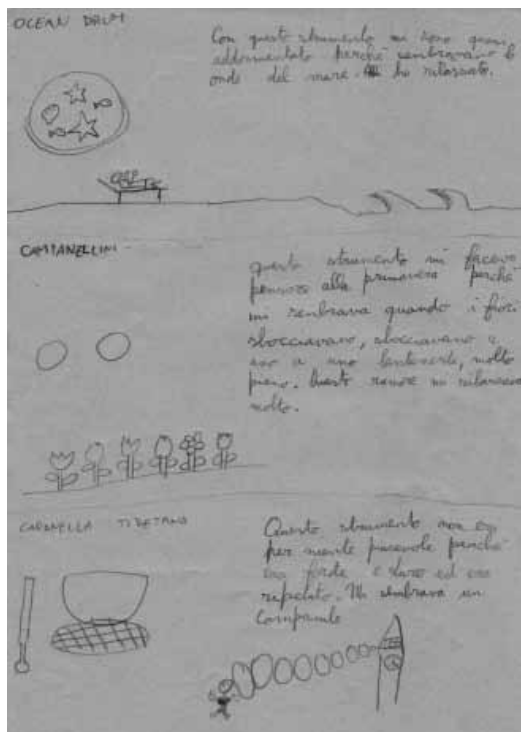 OCEAN DRUM
Con questo strumento mi sono quasi
addormentato perché sembravano le
onde del mare. Mi ha rilassato.
CAMPANELLINI
questo strumento mi faceva
pensare alla primavera perché
mi senbrava quando i fiori
sbocciavano, sbocciavano
uno a uno lentamente, molto
piano. Questo rumore mi rilassava
molto.
CAMPANELLA TIBETANA
Questo strumento non era
per niente piacevole perché
era forte e duro ed era
ripetuto. Mi sembrava un
Campanile